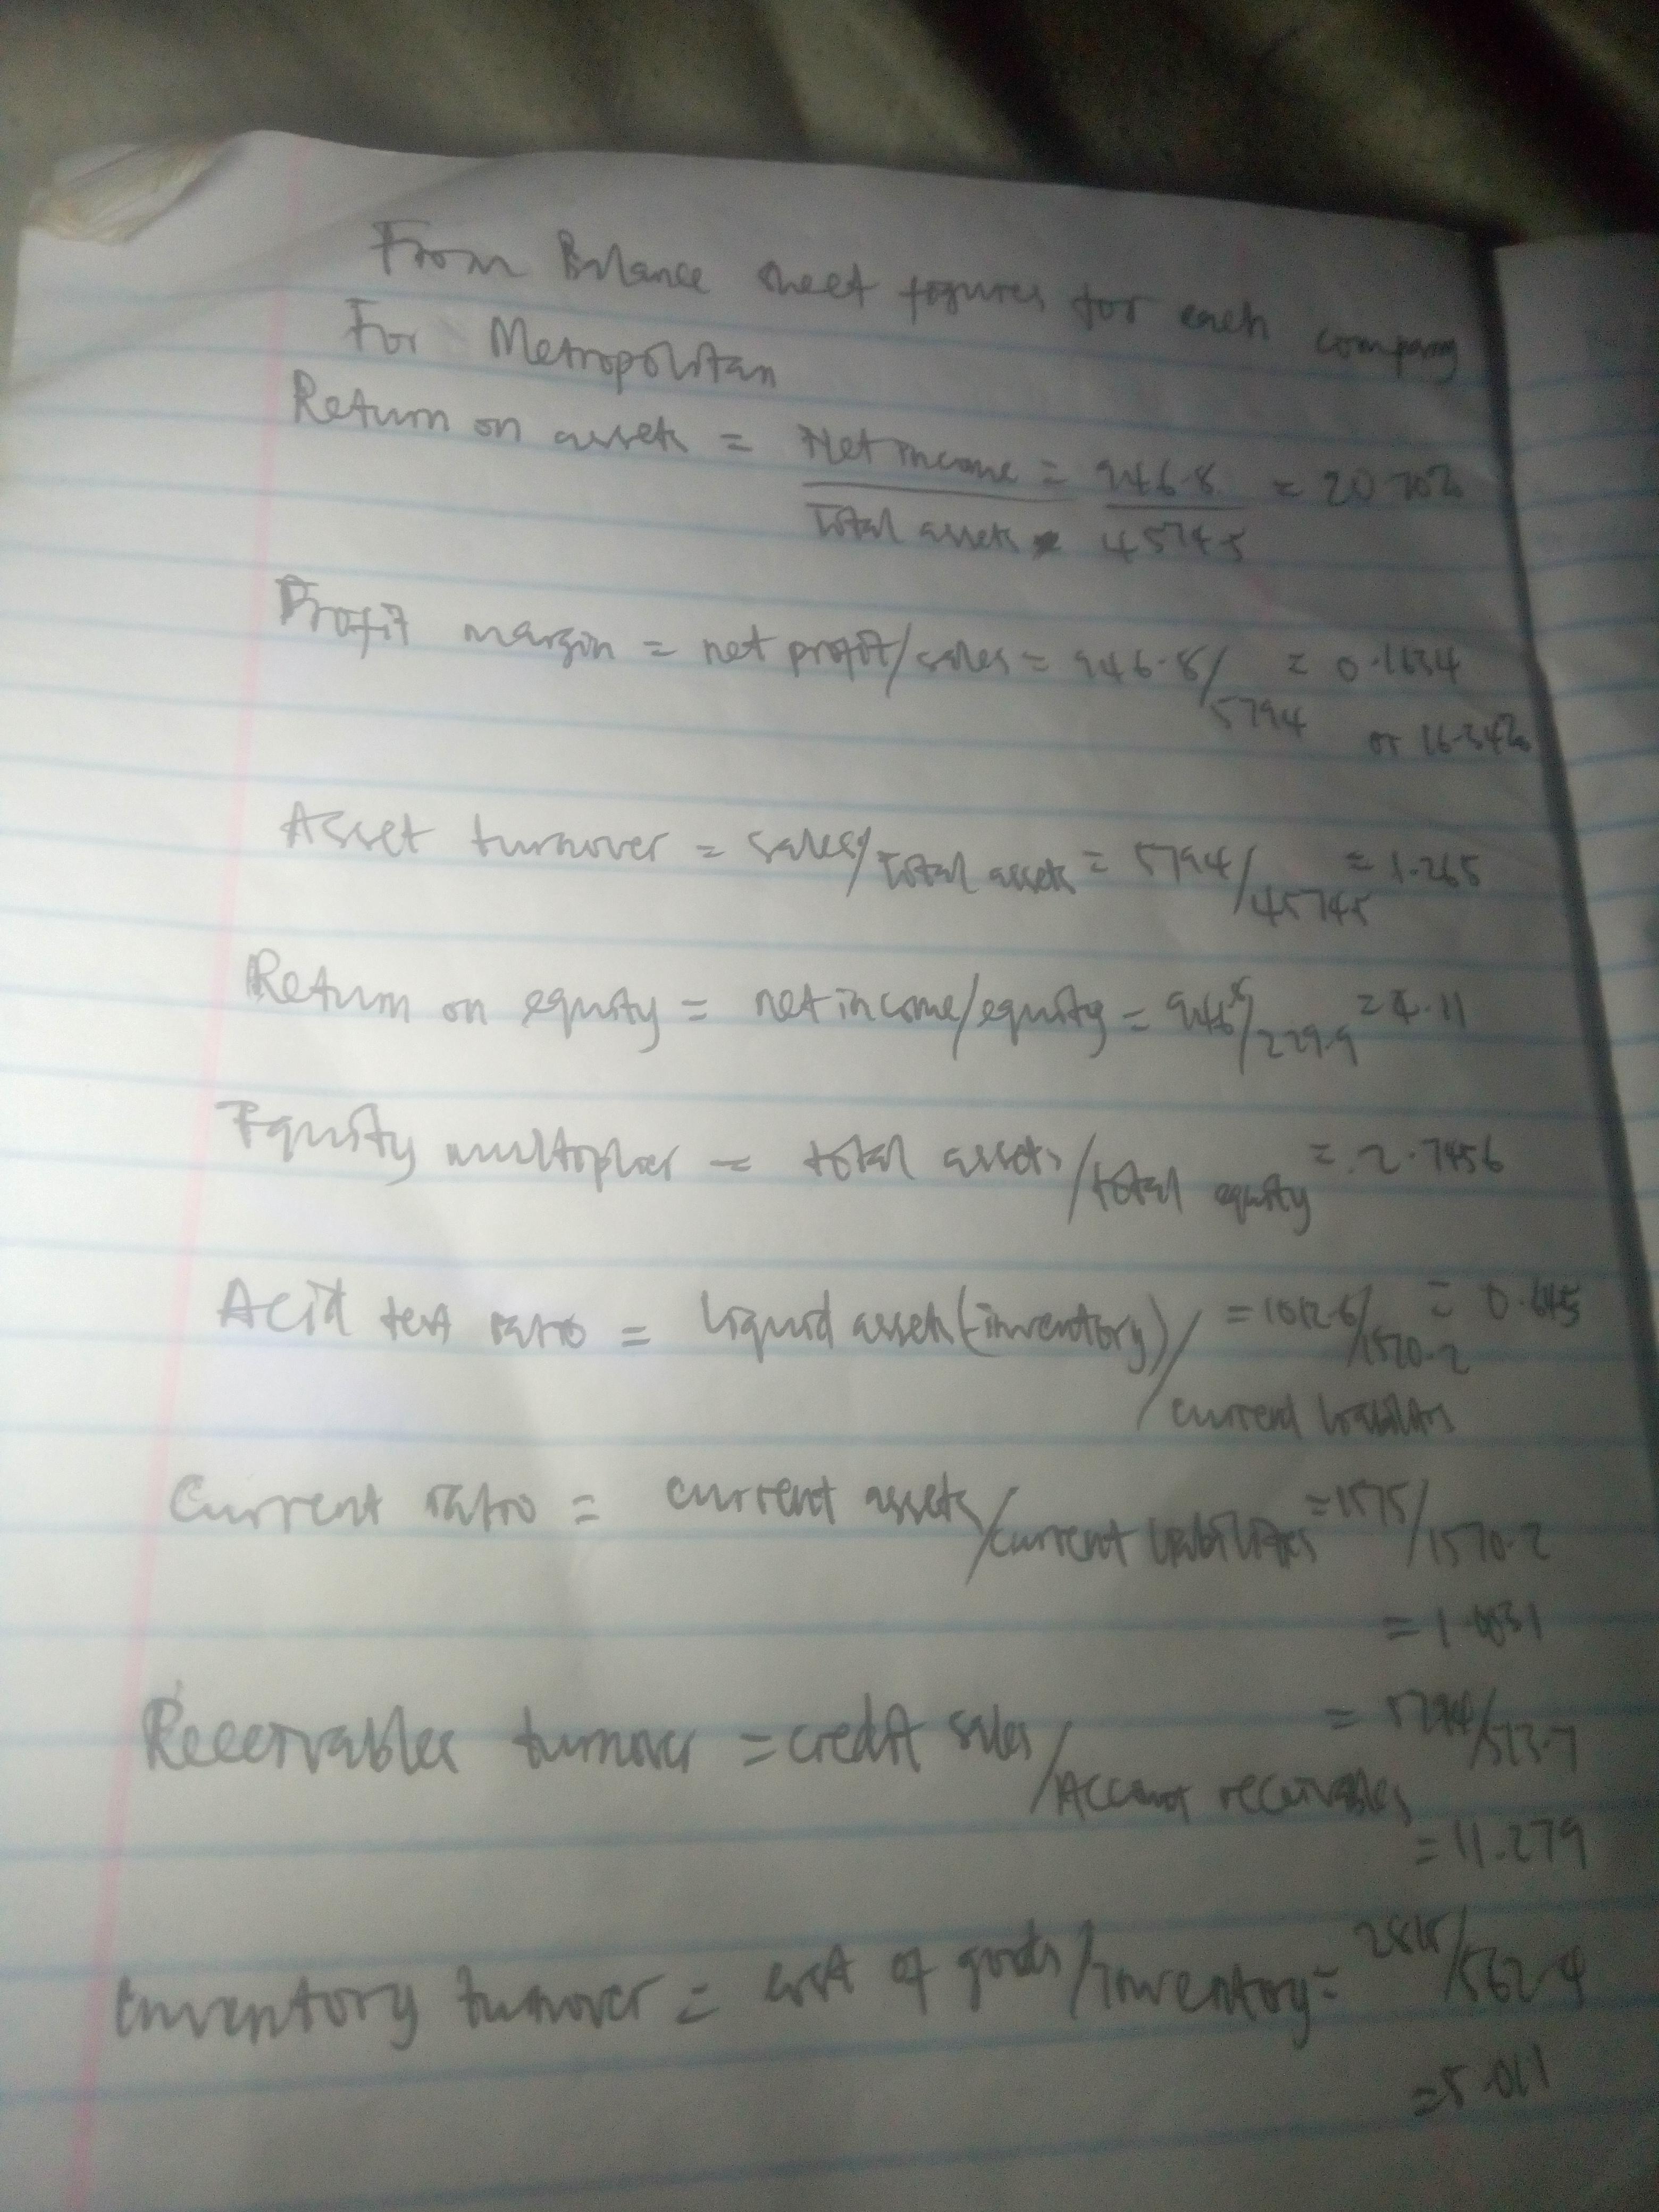 From Balance sheet figures for each company
For Metropolitan
Return on assets = Net income = 946.8 = 20.70%
Total assets 4574.5
Profit margin = net profit/sales = 946.8/5794 = 0.1634
or 16.34%
Asset turnover = sales/Total assets = 5794/4574.5 = 1.265
Return on equity = net income/equity = 946.8/229.9 = 4.11
Equity multiplier = total assets/total equity = 2.7456
Acid test ratio = liquid assets(-inventory)/ = 1012.6/1570.2 = 0.645
current liabilities
Current ratio = current assets/current liabilities = 1575/1570.2
= 1.0031
Receivables turnover = credit sales/Account receivables = 5794/513.7
= 11.279
Inventory turnover = cost of goods/inventory = 2818/562.4
= 5.011